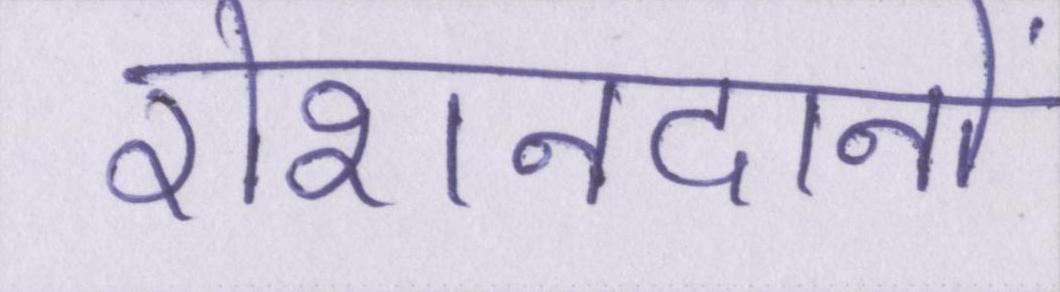 रोशनदानों